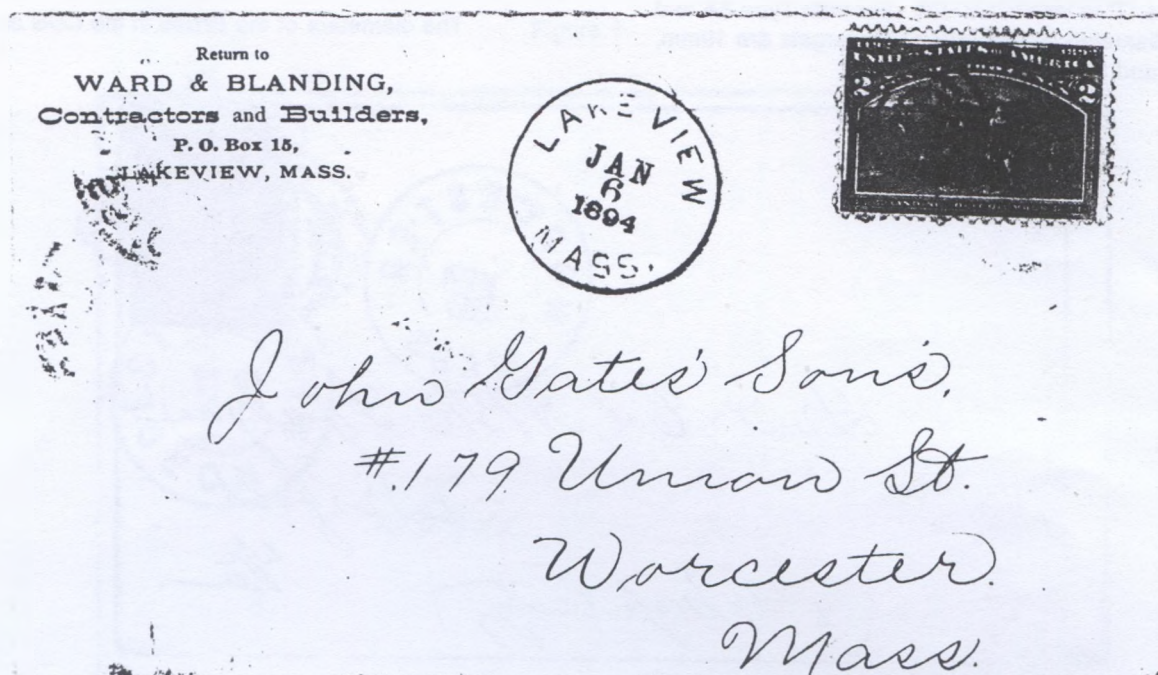 Return to
WARD & BLANDING,
Contractors and Builders,
P. O. Box 15,
LAKEVIEW, MASS.
LAKEVIEW
JAN
6
1894
MASS.
UNITED STATES OF AMERICA
2 2
John Gates' Sons,
#.179. Union St.
Worcester.
Mass.